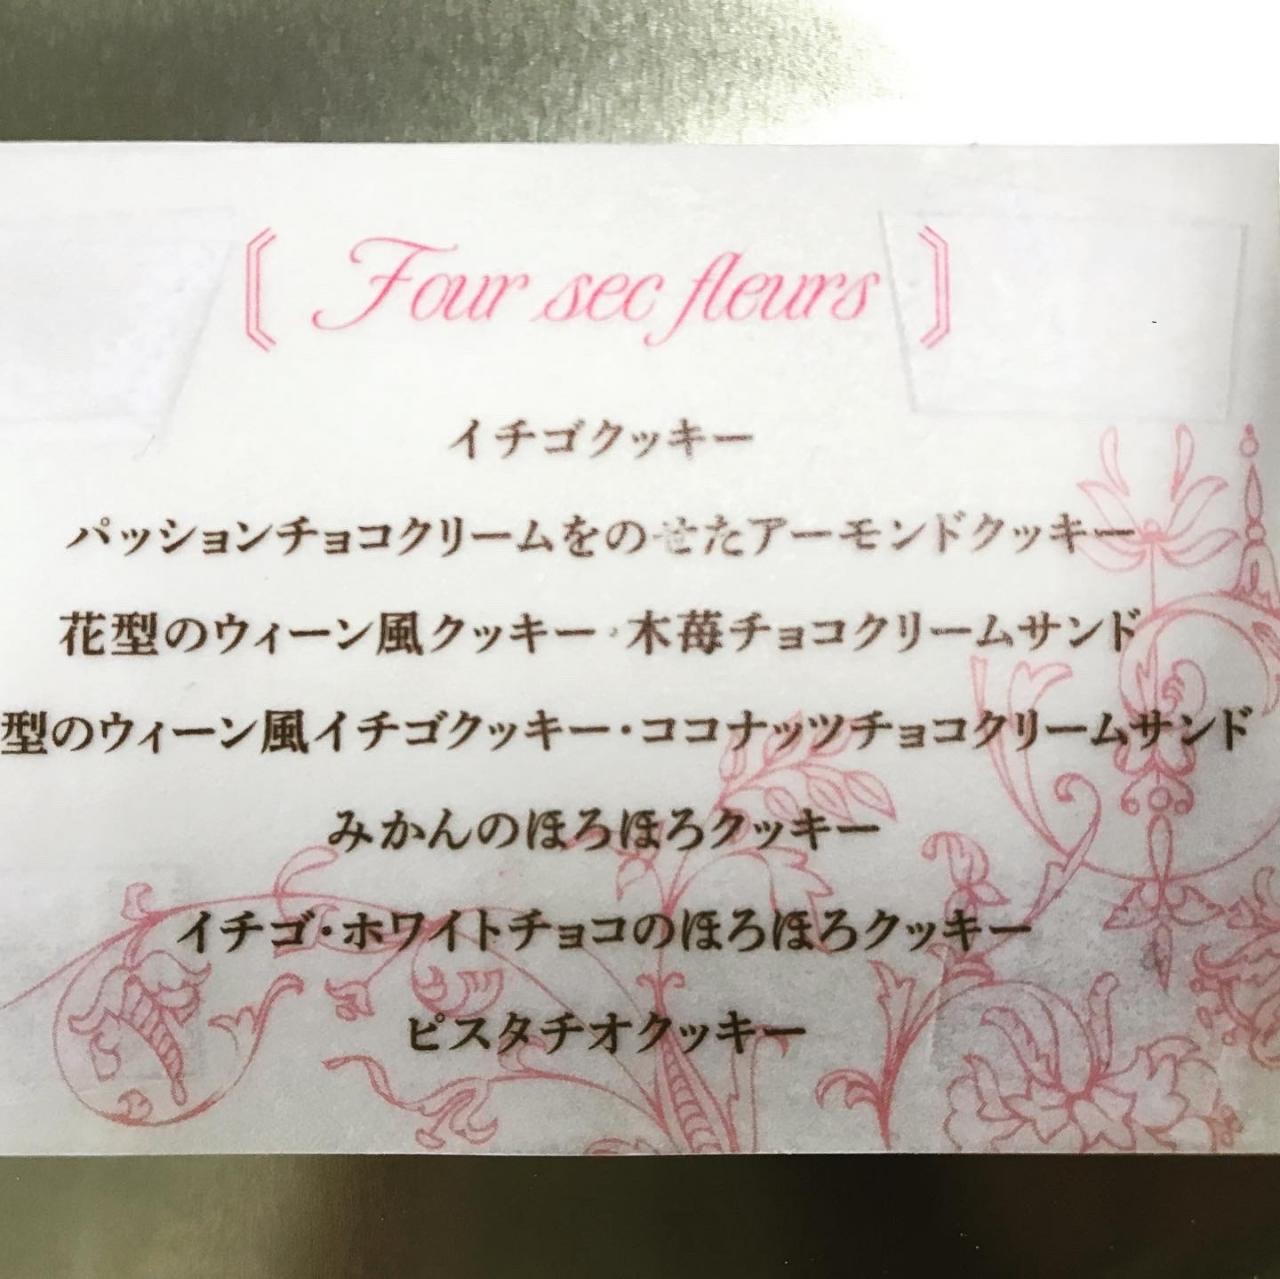 Four sec fleurs
イチゴクッキー
パッションチョコクリームをのせたアーモンドクッキー
花型のウィーン風クッキー・木苺チョコクリームサンド
型のウィーン風イチゴクッキー・ココナッツチョコクリームサンド
みかんのほろほろクッキー
イチゴ・ホワイトチョコのほろほろクッキー
ピスタチオクッキー